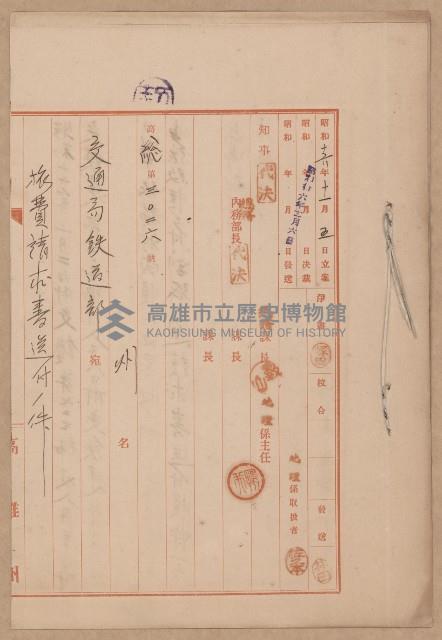 昭和十六年十一月五日立案
昭和 年 月 日決裁
昭和 年 月 日發送
淨書
校合
發送
知事 代決
內務部長 代決
課長
課長
課長
地理係主任
地理係取扱者
高 總 第三〇二六號
州 名
交通局鉄道部 宛
旅費請求書送付ノ件
高雄州
高雄市立歷史博物館
KAOHSIUNG MUSEUM OF HISTORY